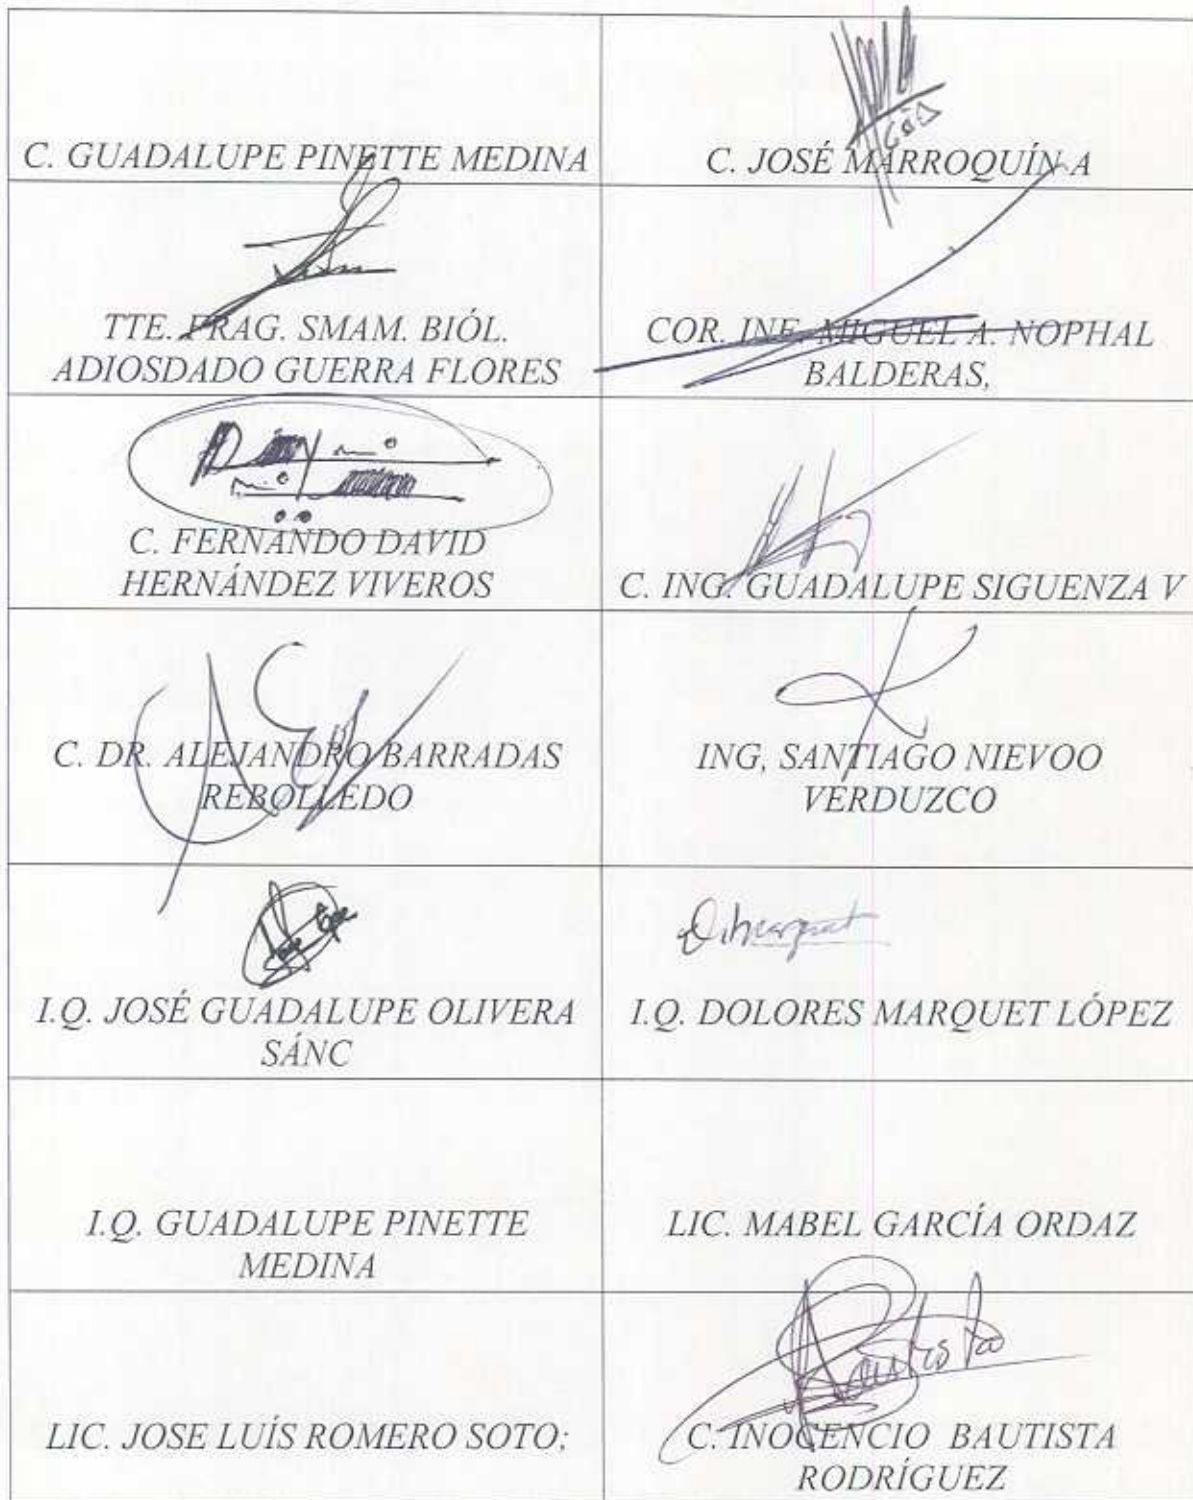 C. GUADALUPE PINETTE MEDINA
C. JOSÉ MARROQUÍN A
TTE. FRAG. SMAM. BIÓL.
ADIOSDADO GUERRA FLORES
COR. INF. MIGUEL A. NOPHAL
BALDERAS,
C. FERNANDO DAVID
HERNÁNDEZ VIVEROS
C. ING. GUADALUPE SIGUENZA V
C. DR. ALEJANDRO BARRADAS
REBOLLEDO
ING, SANTIAGO NIEVOO
VERDUZCO
I.Q. JOSÉ GUADALUPE OLIVERA
SÁNC
I.Q. DOLORES MARQUET LÓPEZ
I.Q. GUADALUPE PINETTE
MEDINA
LIC. MABEL GARCÍA ORDAZ
LIC. JOSE LUÍS ROMERO SOTO;
Bautista
C. INOCENCIO BAUTISTA
RODRÍGUEZ